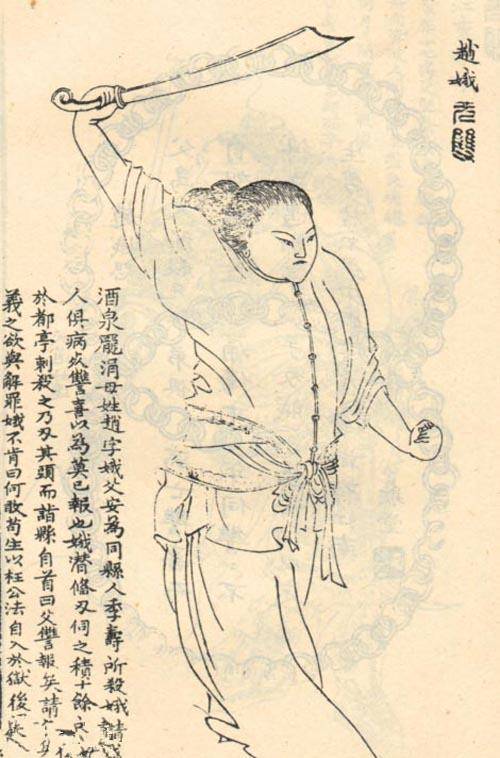 趙娥 无雙
酒泉龐涓母姓趙字娥父安為同縣人李壽所殺娥
人俱病故讐喜以為莫已報也娥潛俻刃伺之積十餘
於都亭刺殺之乃刃其頭而詣縣自首曰父讐報矣請
義之欲與解罪娥不肯曰何敢苟生以枉公法自入於獄後